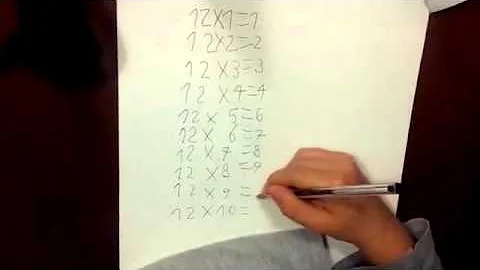 12x1=1
12x2=2
12x3=3
12x4=4
12x5=6
12x6=7
12x7=8
12x8=9
12x9=
12x10=